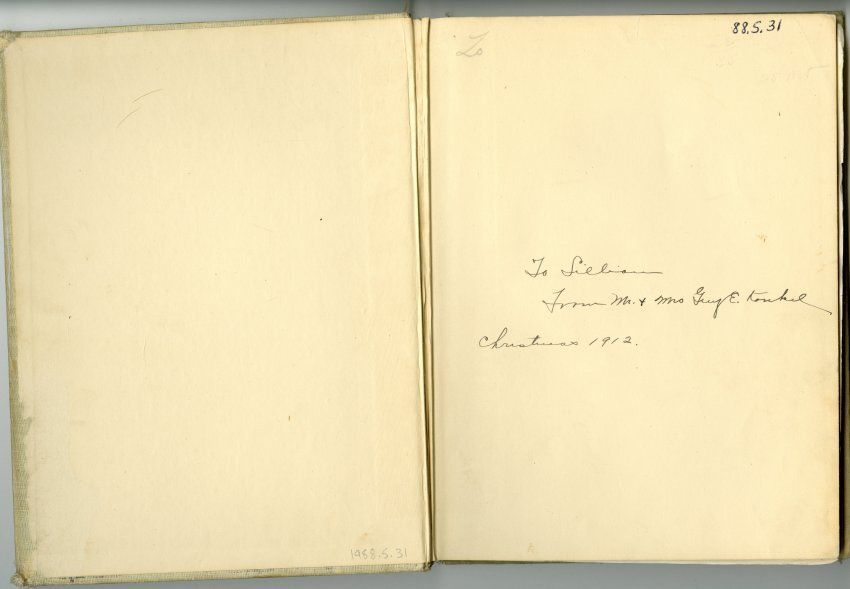 1988.5.31
88.5.31
To
To Lillian
From Mr. & Mrs Guy E. Konkel
Christmas 1912.